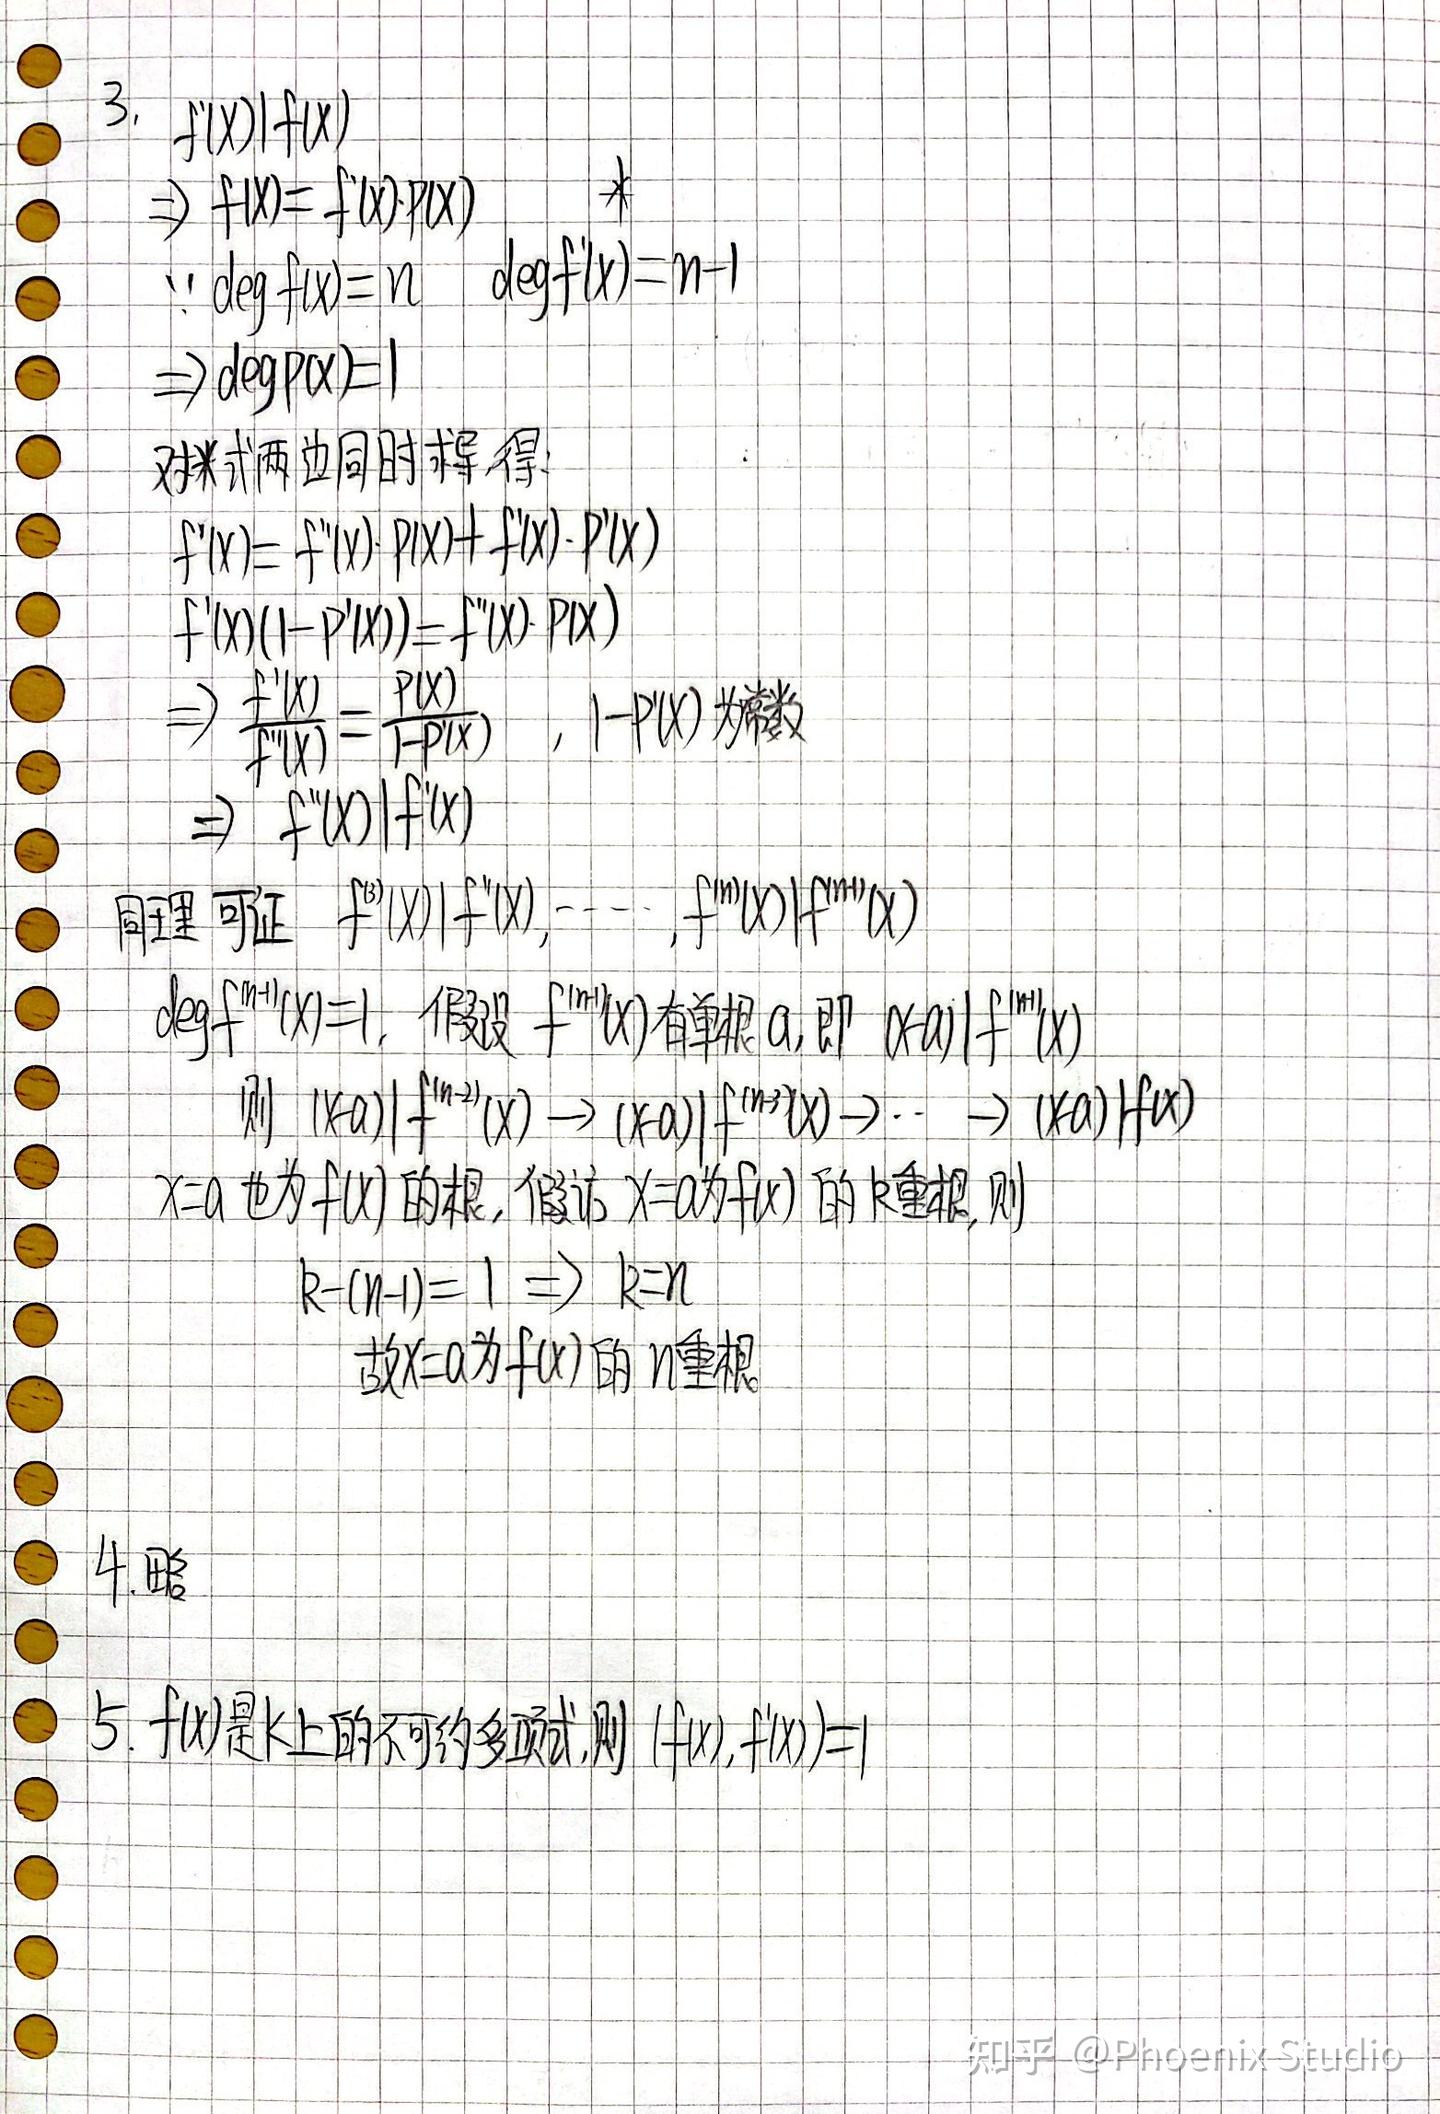 3. f'(x)|f(x)
⇒ f(x)=f'(x)·p(x) *
∵ deg f(x)=n deg f'(x)=n-1
⇒ deg p(x)=1
对*式两边同时求导,得:
f'(x)=f''(x)·p(x)+f'(x)·p'(x)
f'(x)(1-p'(x))=f''(x)·p(x)
⇒ f'(x)/f''(x)=p(x)/1-p'(x) , 1-p'(x)为常数
⇒ f''(x)|f'(x)
同理可证 f⁽³⁾(x)|f''(x),……,f⁽ⁿ⁾(x)|f⁽ⁿ⁻¹⁾(x)
deg f⁽ⁿ⁻¹⁾(x)=1, 假设 f⁽ⁿ⁻¹⁾(x)有单根a,即 (x-a)|f⁽ⁿ⁻¹⁾(x)
则 (x-a)|f⁽ⁿ⁻²⁾(x)→(x-a)|f⁽ⁿ⁻³⁾(x)→…→(x-a)|f(x)
x=a也为f(x)的根,假设x=a为f(x)的k重根,则
k-(n-1)=1 ⇒ k=n
故x=a为f(x)的n重根。
4.略
5. f(x)是K上的不可约多项式,则 (f(x),f'(x))=1
知乎 @Phoenix Studio